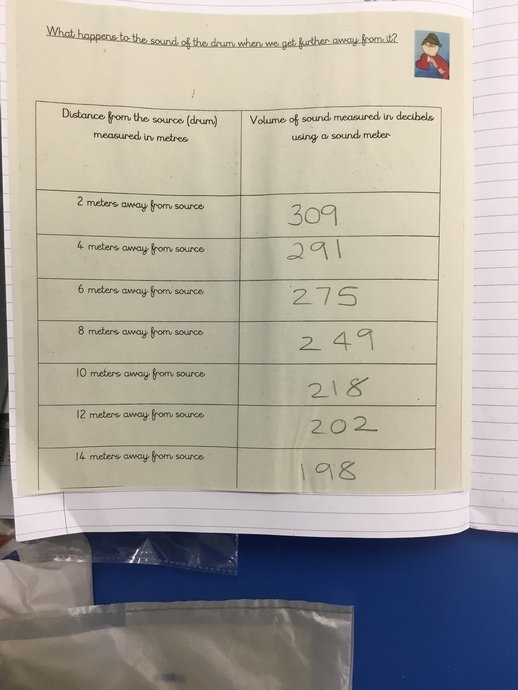 What happens to the sound of the drum when we get further away from it?
Distance from the source (drum)
measured in metres
Volume of sound measured in decibels
using a sound meter
2 meters away from source
309
4 meters away from source
291
6 meters away from source
275
8 meters away from source
249
10 meters away from source
218
12 meters away from source
202
14 meters away from source
198